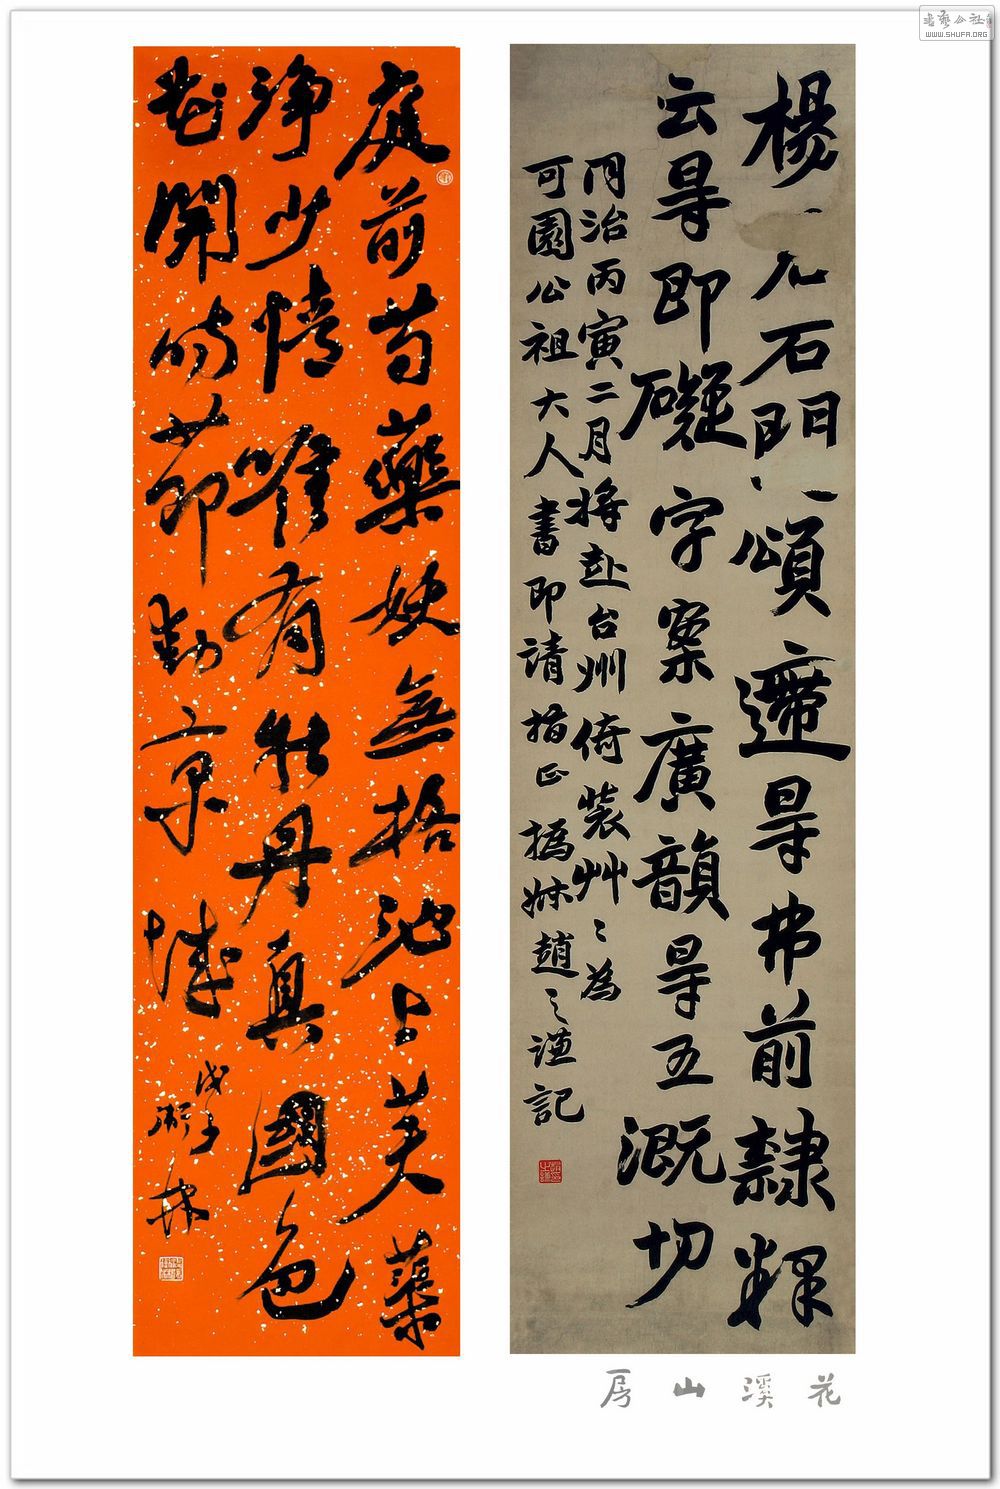 書藝公社
WWW.SHUFA.ORG
楊 石門頌遰㝵弗前隸釋
云㝵即礙字案廣韻㝵五溉切
同治丙寅二月將赴台州倚裝艸〻為
可園公祖大人書即請指正撝叔趙之謙記
庭前芍藥妖無格池上芙蕖
淨少情唯有牡丹真國色
花開時節動京城
戊子
花溪山房